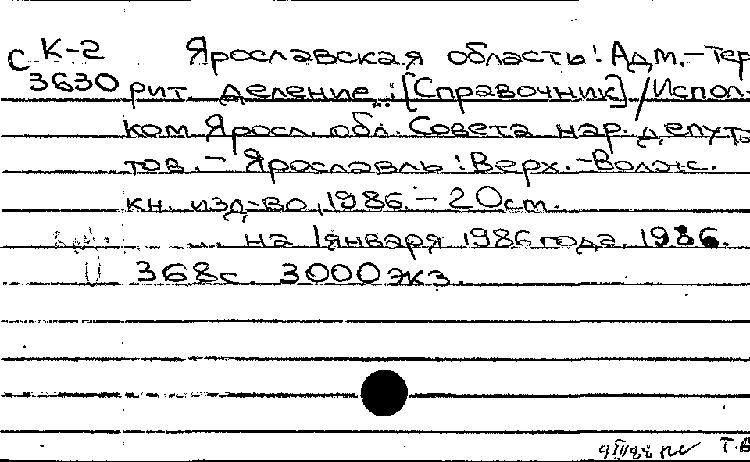 С К-2 Ярославская область: Адм.-тер
3630 рит. деление : [Справочник] / Испол-
ком Яросл. обл. Совета нар. депута
тов. - Ярославль : Верх.-Волж.
кн. изд-во, 1986. - 20см.
... на 1 января 1986 года. 1986.
368с. 3000 экз.
Т.В